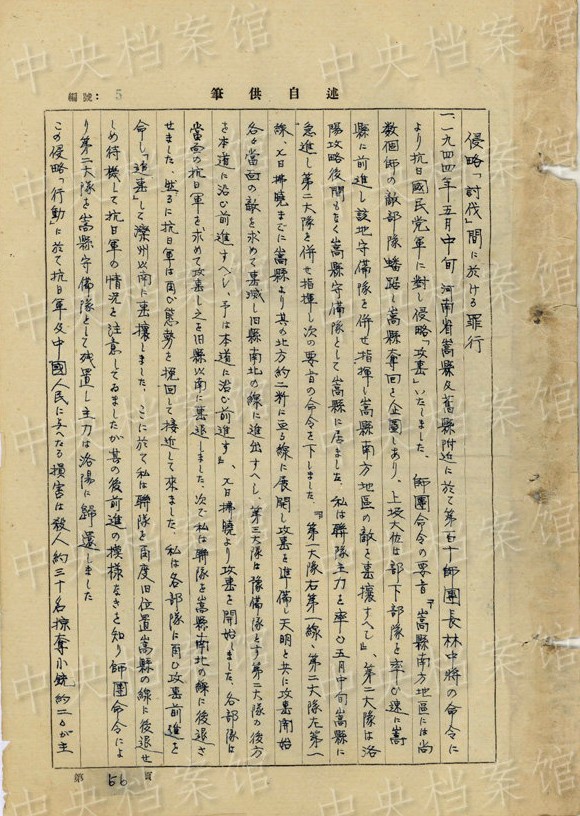 中央档案馆
編號：5
筆供自述
侵略「討伐」間に於ける罪行
一、一九四四年五月中旬河南省嵩縣及舊縣附近に於て第百十師團長林中將の命令に
より抗日國民党軍に對し侵略「攻撃」いたしました。師團命令の要旨『嵩縣南方地區には尚
数個師の敵部隊蟠踞し嵩縣奪回を企圖しあり、上坂大佐は部下部隊を率ひ速に嵩
縣に前進し該地守備隊を併せ指揮し嵩縣南方地區の敵を撃攘すへし』、第二大隊は洛
陽攻略後間もなく嵩縣守備隊として嵩縣に居ました。私は聯隊主力を率ひ五月中旬嵩縣に
急進し第二大隊を併せ指揮し次の要旨の命令を下しました。『第一大隊右第一線、第二大隊左第一
線、X日拂曉までに嵩縣より其の北方約二粁に亘る線に展開し攻撃を準備し天明と共に攻撃開始
各々當面の敵を求めて撃滅し旧縣南北の線に進出すへし、第三大隊は豫備隊とす第二大隊の後方
を本道に沿ひ前進すへし、予は本道に沿ひ前進す』、X日拂曉より攻撃を開始しました、各部隊は
當面の抗日軍を求めて攻撃し之を旧縣以南に撃退しました、次で私は聯隊を嵩縣南北の線に後退さ
せました、然るに抗日軍は再び態勢を挽回して接近して來ました、私は各部隊に再ひ攻撃前進を
命し「追撃」して 以南に撃攘しました、ここに於て私は聯隊を再度旧位置嵩縣の線に後退せ
しめ待機して抗日軍の情況を注意してゐましたか其の後前進の模様なきを知り師團命令によ
り第二大隊を嵩縣守備隊として残置し主力は洛陽に歸還しました
この侵略「行動」に於て抗日軍及中國人民に与へたる損害は殺人約三十名掠奪小 約二 が主
第56頁